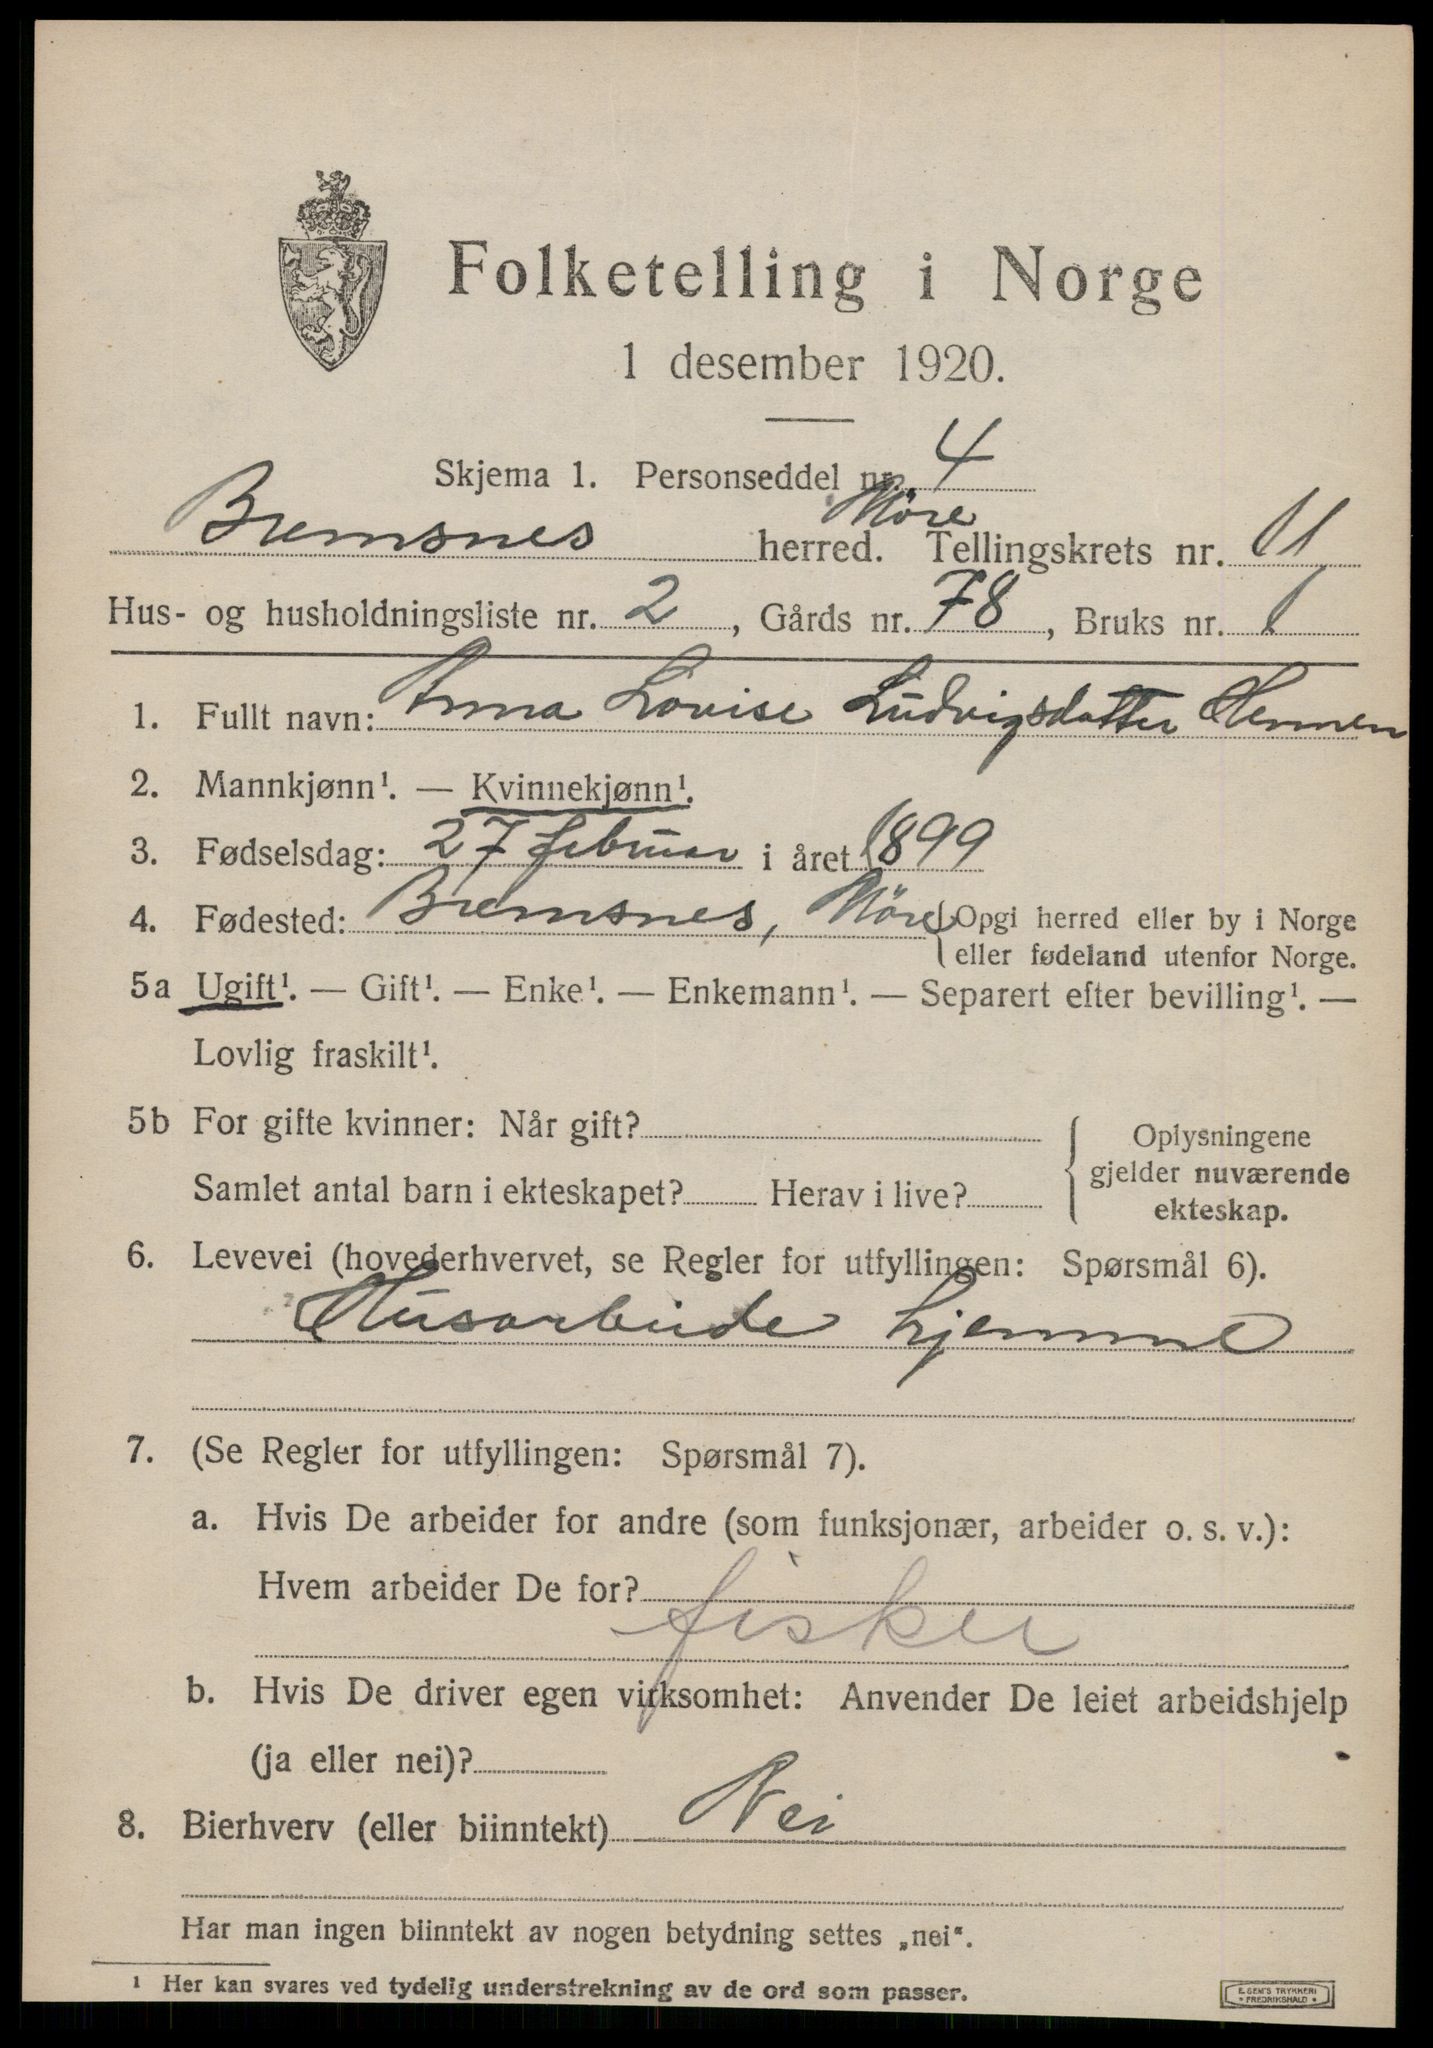 Folketelling i Norge
1 desember 1920.
Skjema 1. Personseddel nr. 4
Bremsnes herred. Möre Tellingskrets nr. 11
Hus- og husholdningsliste nr. 2, Gårds nr. 78, Bruks nr. 1
1. Fullt navn: Anna Lovise Ludvigsdatter
2. Mannkjønn¹. — Kvinnekjønn¹.
3. Fødselsdag: 27 februar i året 1899
4. Fødested: Bremsnes, Möre {Opgi herred eller by i Norge
eller fødeland utenfor Norge.
5a Ugift¹. — Gift¹. — Enke¹. — Enkemann¹. — Separert efter bevilling¹. —
Lovlig fraskilt¹.
5b For gifte kvinner: Når gift?
Samlet antal barn i ekteskapet? Herav i live?
Oplysningene
gjelder nuværende
ekteskap.
6. Levevei (hovederhvervet, se Regler for utfyllingen: Spørsmål 6).
Husarbeide hjemme
7. (Se Regler for utfyllingen: Spørsmål 7).
a. Hvis De arbeider for andre (som funksjonær, arbeider o. s. v.):
Hvem arbeider De for?
fisker
b. Hvis De driver egen virksomhet: Anvender De leiet arbeidshjelp
(ja eller nei)?
8. Bierhverv (eller biinntekt) Nei
Har man ingen biinntekt av nogen betydning settes „nei“.
¹ Her kan svares ved tydelig understrekning av de ord som passer.
E. SEM'S TRYKKERI
• FREDRIKSHALD •